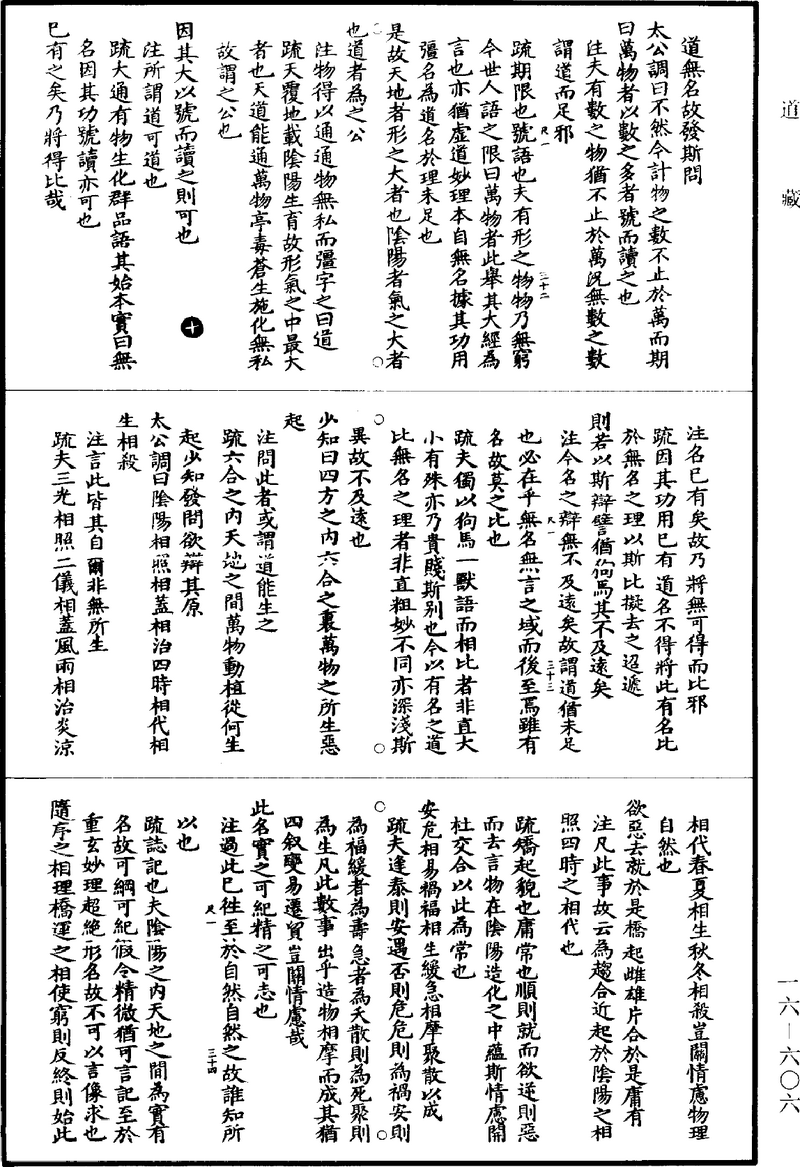 道藏
道無名故發斯問
太公調曰不然今計物之數不止於萬而期
曰萬物者以數之多者號而讀之也
註夫有數之物猶不止於萬況無數之數
謂道而足邪
尺一
三十二
疏期限也號語也夫有形之物物乃無窮
今世人語之限曰萬物者此舉其大經為
言也亦猶虛道妙理本自無名據其功用
彊名為道名於理未足也
是故天地者形之大者也陰陽者氣之大者
也道者為之公
注物得以通通物無私而彊字之曰道
疏天覆地載陰陽生育故形氣之中最大
者也天道能通萬物亭毒蒼生施化無私
故謂之公也
因其大以號而讀之則可也
注所謂道可道也
疏大通有物生化群品語其始本實曰無
名因其功號讀亦可也
已有之矣乃將得比哉
十
注名已有矣故乃將無可得而比邪
疏因其功用已有道名不得將此有名比
於無名之理以斯比擬去之迢遞
則若以斯辯譬猶狗馬其不及遠矣
注今名之辯無不及遠矣故謂道猶未足
尺一
三十三
也必在乎無名無言之域而後至焉雖有
名故莫之比也
疏夫獨以狗馬一獸語而相比者非直大
小有殊亦乃貴賤斯別也今以有名之道
比無名之理者非直粗妙不同亦深淺斯
異故不及遠也
少知曰四方之內六合之裏萬物之所生惡
起
注問此者或謂道能生之
疏六合之內天地之間萬物動植從何生
起少知發問欲辯其原
太公調曰陰陽相照相蓋相治四時相代相
生相殺
注言此皆其自爾非無所生
疏夫三光相照二儀相蓋風雨相治炎涼
相代春夏相生秋冬相殺豈關情慮物理
自然也
欲惡去就於是橋起雌雄片合於是庸有
注凡此事故云為趨合近起於陰陽之相
照四時之相代也
疏矯起貌也庸常也順則就而欲逆則惡
而去言物在陰陽造化之中蘊斯情慮開
杜交合以此為常也
安危相易禍福相生緩急相摩聚散以成
疏夫逢泰則安遇否則危危則為禍安則
為福緩者為壽急者為夭散則為死聚則
為生凡此數事出乎造物相摩而成其猶
四敘變易遷貿豈關情慮哉
此名實之可紀精之可志也
注過此已往至於自然自然之故誰知所
尺一
三十四
以也
疏誌記也夫陰陽之內天地之間為實有
名故可綱可紀假令精微猶可言記至於
重玄妙理超絕形名故不可以言像求也
隨序之相理橋運之相使窮則反終則始此
一六—六〇六